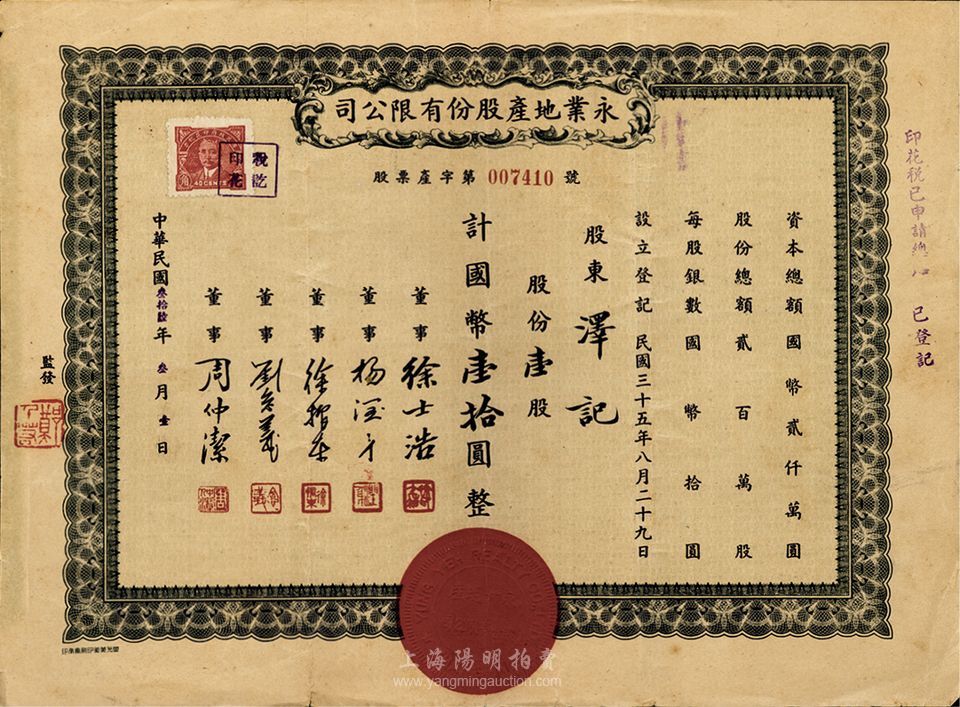 永業地產股份有限公司
股票產字第 007410 號
資本總額 國幣貳仟萬圓
股份總額 貳百萬股
每股銀數 國幣拾圓
設立登記 民國三十五年八月二十九日
股東 澤記
股份壹股
計國幣壹拾圓整
董事 徐士浩
董事
董事
董事
董事 周仲潔
中華民國叁拾陸年叁月壹日
稅訖
印花
40 CENTS
印花稅已申請總
已登記
監發
YUNG YEH REALTY
上海陽明拍賣
www.yangmingauction.com